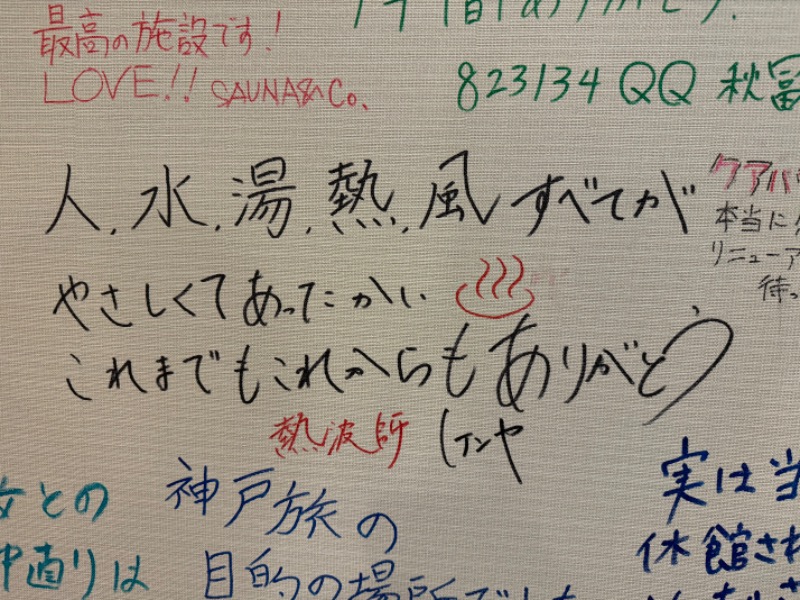 最高の施設です!
LOVE!! SAUNA&Co.
823134 QQ 秋冨
人、水、湯、熱、風すべてが
やさしくてあったかい ♨
これまでもこれからもありがとう
熱波師 ケンヤ
クアハ
本当に
リニューア
待っ
との
仲直りは
神戸旅の
目的の場所でした
実は当
休館され